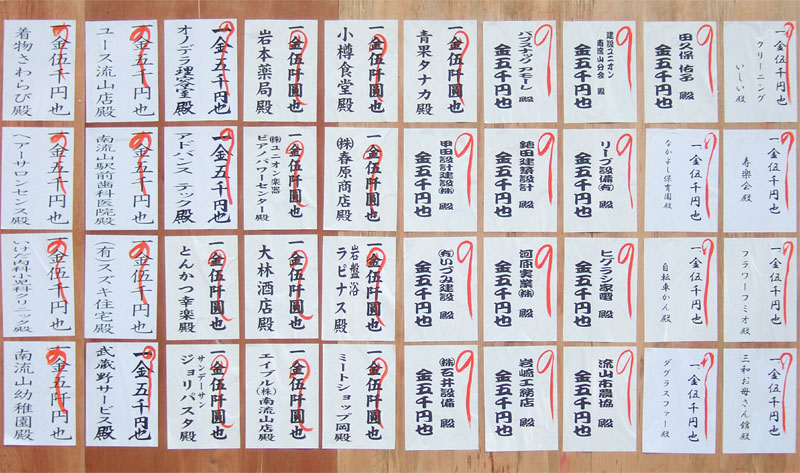 一金伍千円也
クリーニング
いしい殿
田久保 殿
金五千円也
建設ユニオン
南流山分会 殿
金五千円也
パブスナック カモーレ 殿
金五千円也
一金伍阡圓也
青果タナカ殿
一金伍阡圓也
小樽食堂殿
一金伍阡圓也
岩本薬局殿
一金五千円也
オノデラ理容室殿
一金伍千円也
ユース流山店殿
一金伍千円也
着物さわらび殿
一金伍千円也
寿楽会殿
一金伍千円也
なかよし保育園殿
リーブ設備(有) 殿
金五千円也
田建築設計 殿
金五千円也
甲田設計建設(株) 殿
金五千円也
一金伍阡圓也
(株)春原商店殿
一金伍阡圓也
(株)ユニオン楽器
ピアノパワーセンター殿
一金五千円也
アドバンス テック殿
一金伍千円也
南流山駅前歯科医院殿
一金伍千円也
ヘアーサロンセンス殿
一金伍千円也
フラワーフミオ殿
一金伍千円也
自転車かん殿
ヒグラシ家電 殿
金五千円也
河原実業(株) 殿
金五千円也
(有)いづみ建設 殿
金五千円也
一金伍阡圓也
岩盤浴
ラピナス殿
一金伍阡圓也
大林酒店殿
一金伍阡圓也
とんかつ幸楽殿
一金伍千円也
(有)スズキ住宅殿
一金伍千円也
いけだ内科小児科クリニック殿
一金伍千円也
三和お母さん館殿
一金伍千円也
ダグラスファー殿
流山市農協 殿
金五千円也
岩崎工務店 殿
金五千円也
(株)石井設備 殿
金五千円也
一金伍阡圓也
ミートショップ岡殿
一金伍阡圓也
エイブル(株)南流山店殿
一金伍阡圓也
サンデーサン
ジョリパスタ殿
一金五千円也
武蔵野サービス殿
一金五阡円也
南流山幼稚園殿